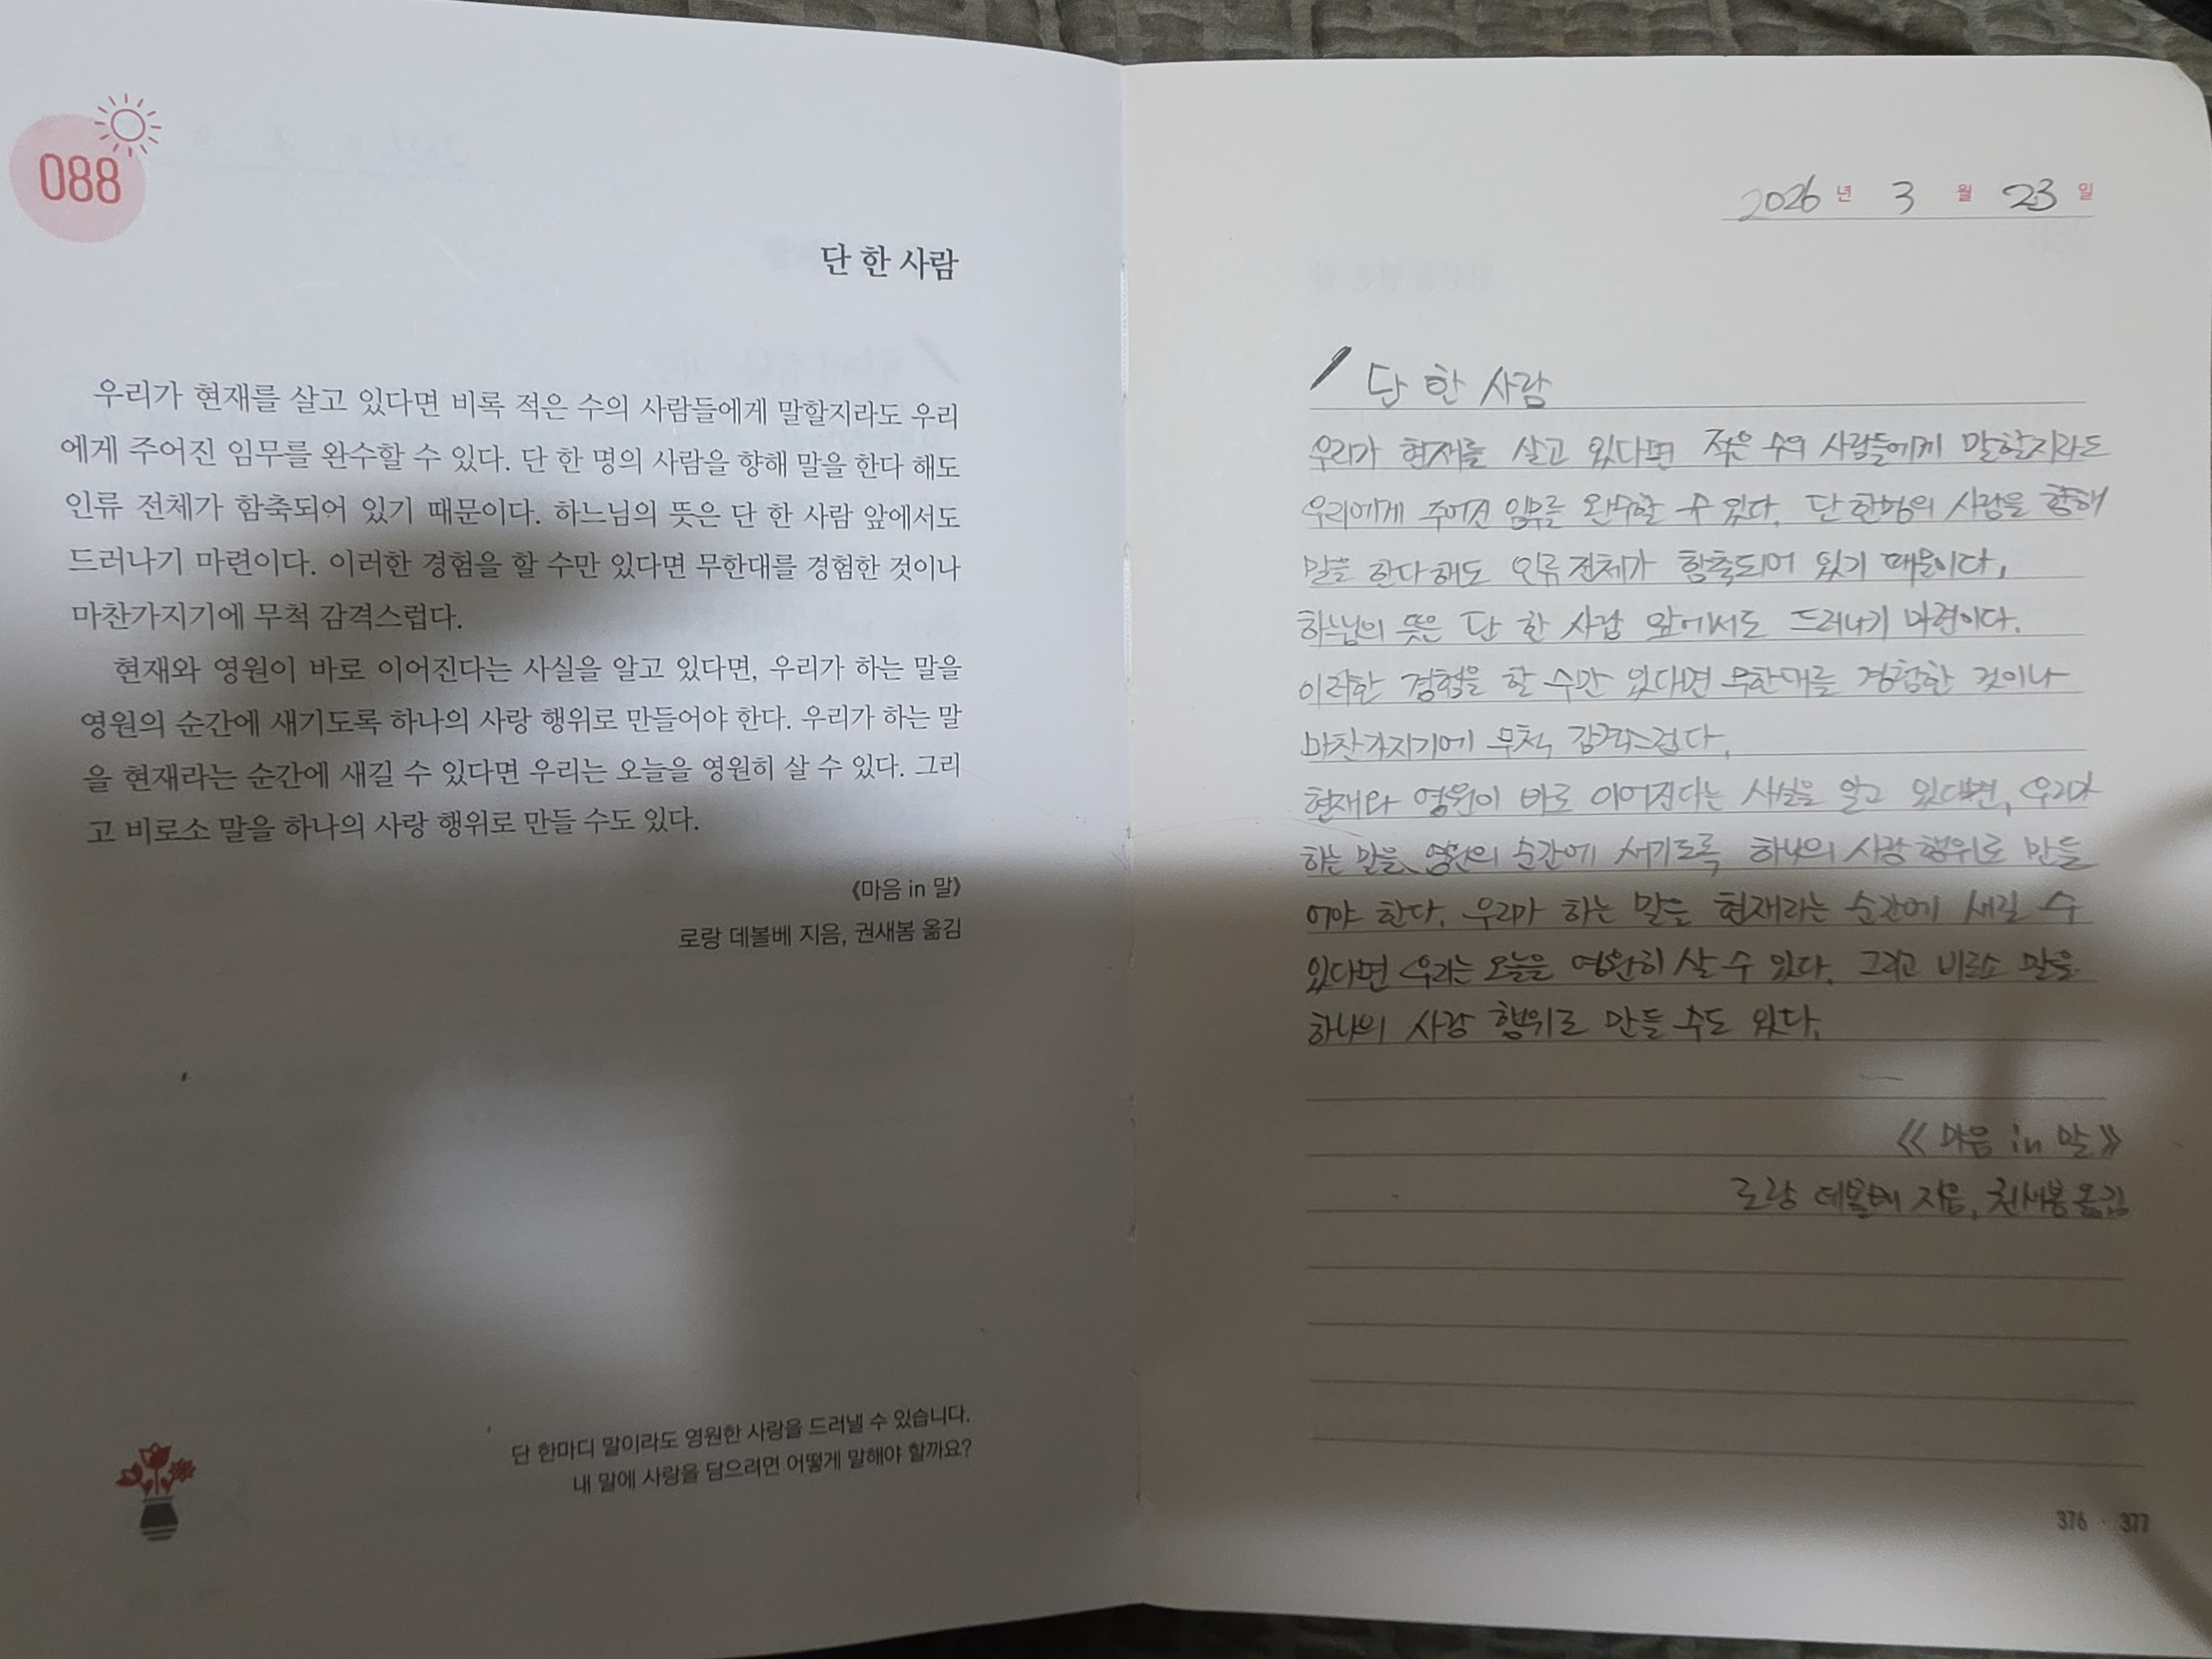 088
단 한 사람
우리가 현재를 살고 있다면 비록 적은 수의 사람들에게 말할지라도 우리
에게 주어진 임무를 완수할 수 있다. 단 한 명의 사람을 향해 말을 한다 해도
인류 전체가 함축되어 있기 때문이다. 하느님의 뜻은 단 한 사람 앞에서도
드러나기 마련이다. 이러한 경험을 할 수만 있다면 무한대를 경험한 것이나
마찬가지기에 무척 감격스럽다.
현재와 영원이 바로 이어진다는 사실을 알고 있다면, 우리가 하는 말을
영원의 순간에 새기도록 하나의 사랑 행위로 만들어야 한다. 우리가 하는 말
을 현재라는 순간에 새길 수 있다면 우리는 오늘을 영원히 살 수 있다. 그리
고 비로소 말을 하나의 사랑 행위로 만들 수도 있다.
《마음 in 말》
로랑 데볼베 지음, 권새봄 옮김
단 한마디 말이라도 영원한 사랑을 드러낼 수 있습니다.
내 말에 사랑을 담으려면 어떻게 말해야 할까요?
2026 년 3 월 23 일
단 한 사람
우리가 현재를 살고 있다면 적은 수의 사람들에게 말할지라도
우리에게 주어진 임무를 완수할 수 있다. 단 한명의 사람을 향해
말을 한다해도 인류 전체가 함축되어 있기 때문이다.
하느님의 뜻은 단 한 사람 앞에서도 드러나기 마련이다.
이러한 경험을 할 수만 있다면 무한대를 경험한 것이나
마찬가지기에 무척 감격스럽다.
현재와 영원이 바로 이어진다는 사실을 알고 있다면, 우리가
하는 말을 영원의 순간에 새기도록 하나의 사랑 행위로 만들
어야 한다. 우리가 하는 말을 현재라는 순간에 새길 수
있다면 우리는 오늘을 영원히 살 수 있다. 그리고 비로소 말을
하나의 사랑 행위로 만들 수도 있다.
《마음 in 말》
로랑 데볼베 지음, 권새봄 옮김
376 · 377